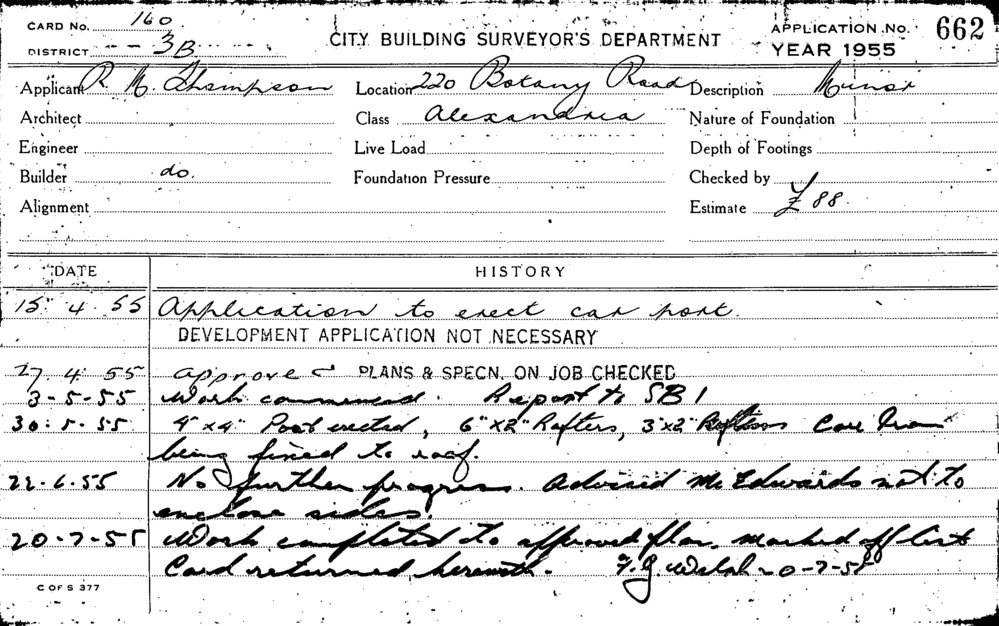 CARD No. 160
DISTRICT 3B
CITY BUILDING SURVEYOR'S DEPARTMENT
APPLICATION No. 662
YEAR 1955
Applicant R. M. Thompson Location 220 Botany Road Description Minor
Architect Class Alexandria Nature of Foundation
Engineer Live Load Depth of Footings
Builder do. Foundation Pressure Checked by
Alignment Estimate £88
DATE HISTORY
15. 4. 55 Application to erect car port.
DEVELOPMENT APPLICATION NOT NECESSARY
27. 4. 55 approved PLANS & SPECN. ON JOB CHECKED
3-5-55 Work commenced. Report to SB 1
30.5.55 4"x4" Post erected, 6"x2" Rafters, 3"x2" Iron
being fixed to roof.
22.6.55 No further progress. Advised Mr Edwards not to
enclose sides.
20-7-55 Work completed to approved plan. marked off list
Card returned herewith. F. J. Walsh 20-7-55
C OF S 377